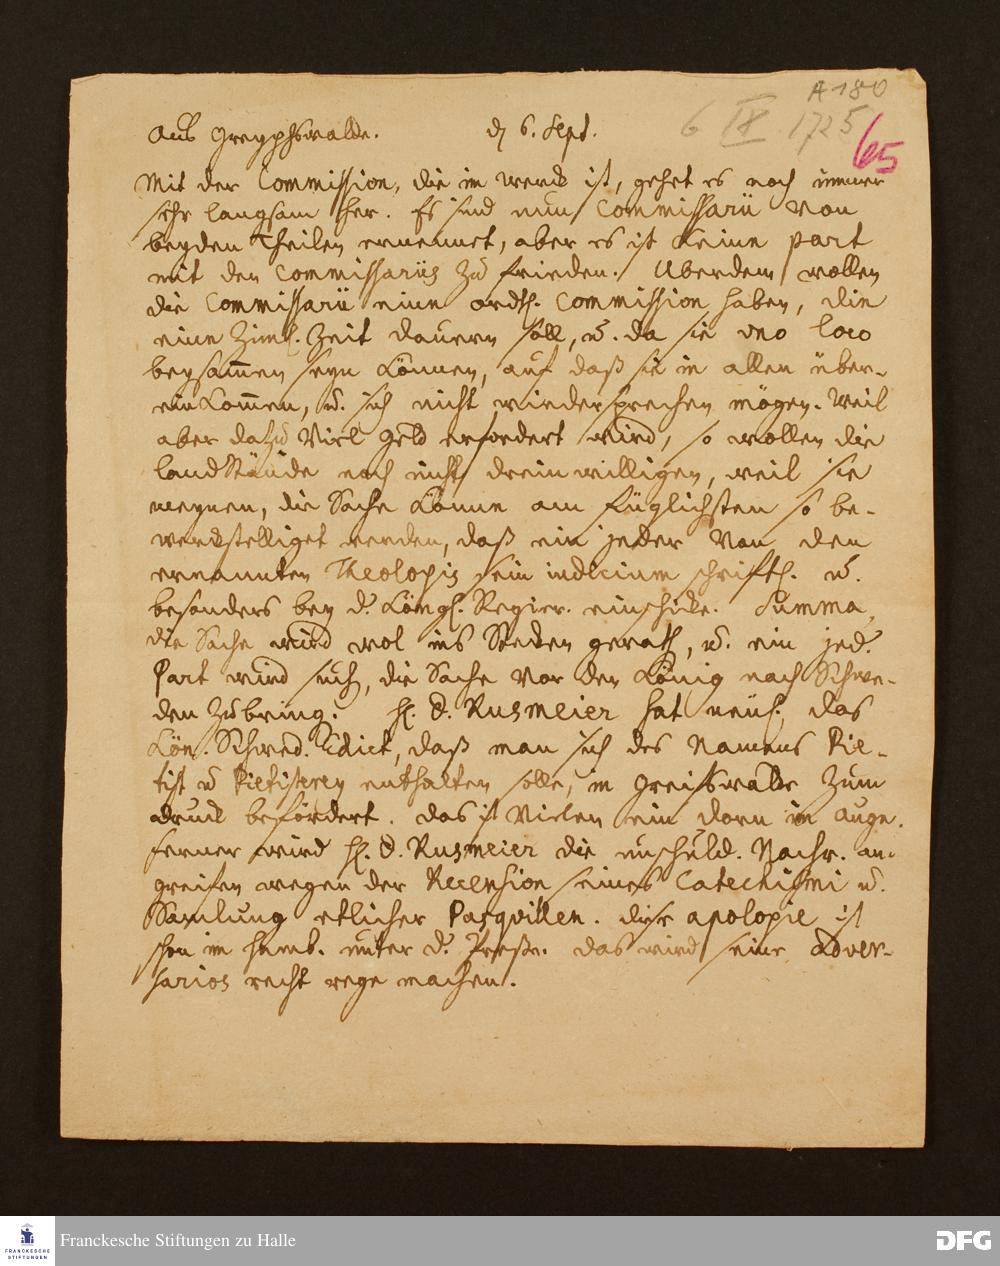 A 180
6 IX 1725
65
Aus Greyphswalde. d 6. Sept.
Mit der Commission, die im werck ist, gehet es noch immer
sehr langsam her. Es sind nun Commissarii von
beyden Theilen ernennet, aber es ist keine part
mit den Commissariis zu frieden. Uberdem wollen
die Commissarii eine ordtl. Commission haben, die
eine Ziml. Zeit dauern soll, u. da sie uno loco
beysam̄en seyn können, auf daß sie in allen über-
einkom̄en, u. sich nicht wiedersprechen mögen. Weil
aber dazu viel Geld erfordert wird, so wollen die
LandStände noch nicht drein willigen, weil sie
meynen, die Sache könne am füglichsten so be-
werckstelliget werden, daß ein jeder von den
ernannten Theologis sein iudicium schriftl. u.
besonders bey d. Köngl. Regier. einschicke. Summa,
die Sache wird wol ins Stecken gerath, u. ein jed.
Part wird such, die Sache vor den König nach Schwe-
den Zubring. H. D. Rusmeier hat neul. das
Kön. Schwed. Edict, daß man sich des Namens Pie-
tist u Pietisterey enthalten solle, in Greifswalde zum
druck befördert. das ist vielen ein dorn im Auge.
ferner wird H. D. Rusmeier die unschuld. Nachr. an-
greifen wegen der Recension seines Catechismi u.
Samlung etlicher Pasquillen. diese apologie ist
schon im Hamb. unter d. Presse. das wird seine Adver-
sarios recht rege machen.
FRANCKESCHE
STIFTUNGEN
Franckesche Stiftungen zu Halle
DFG